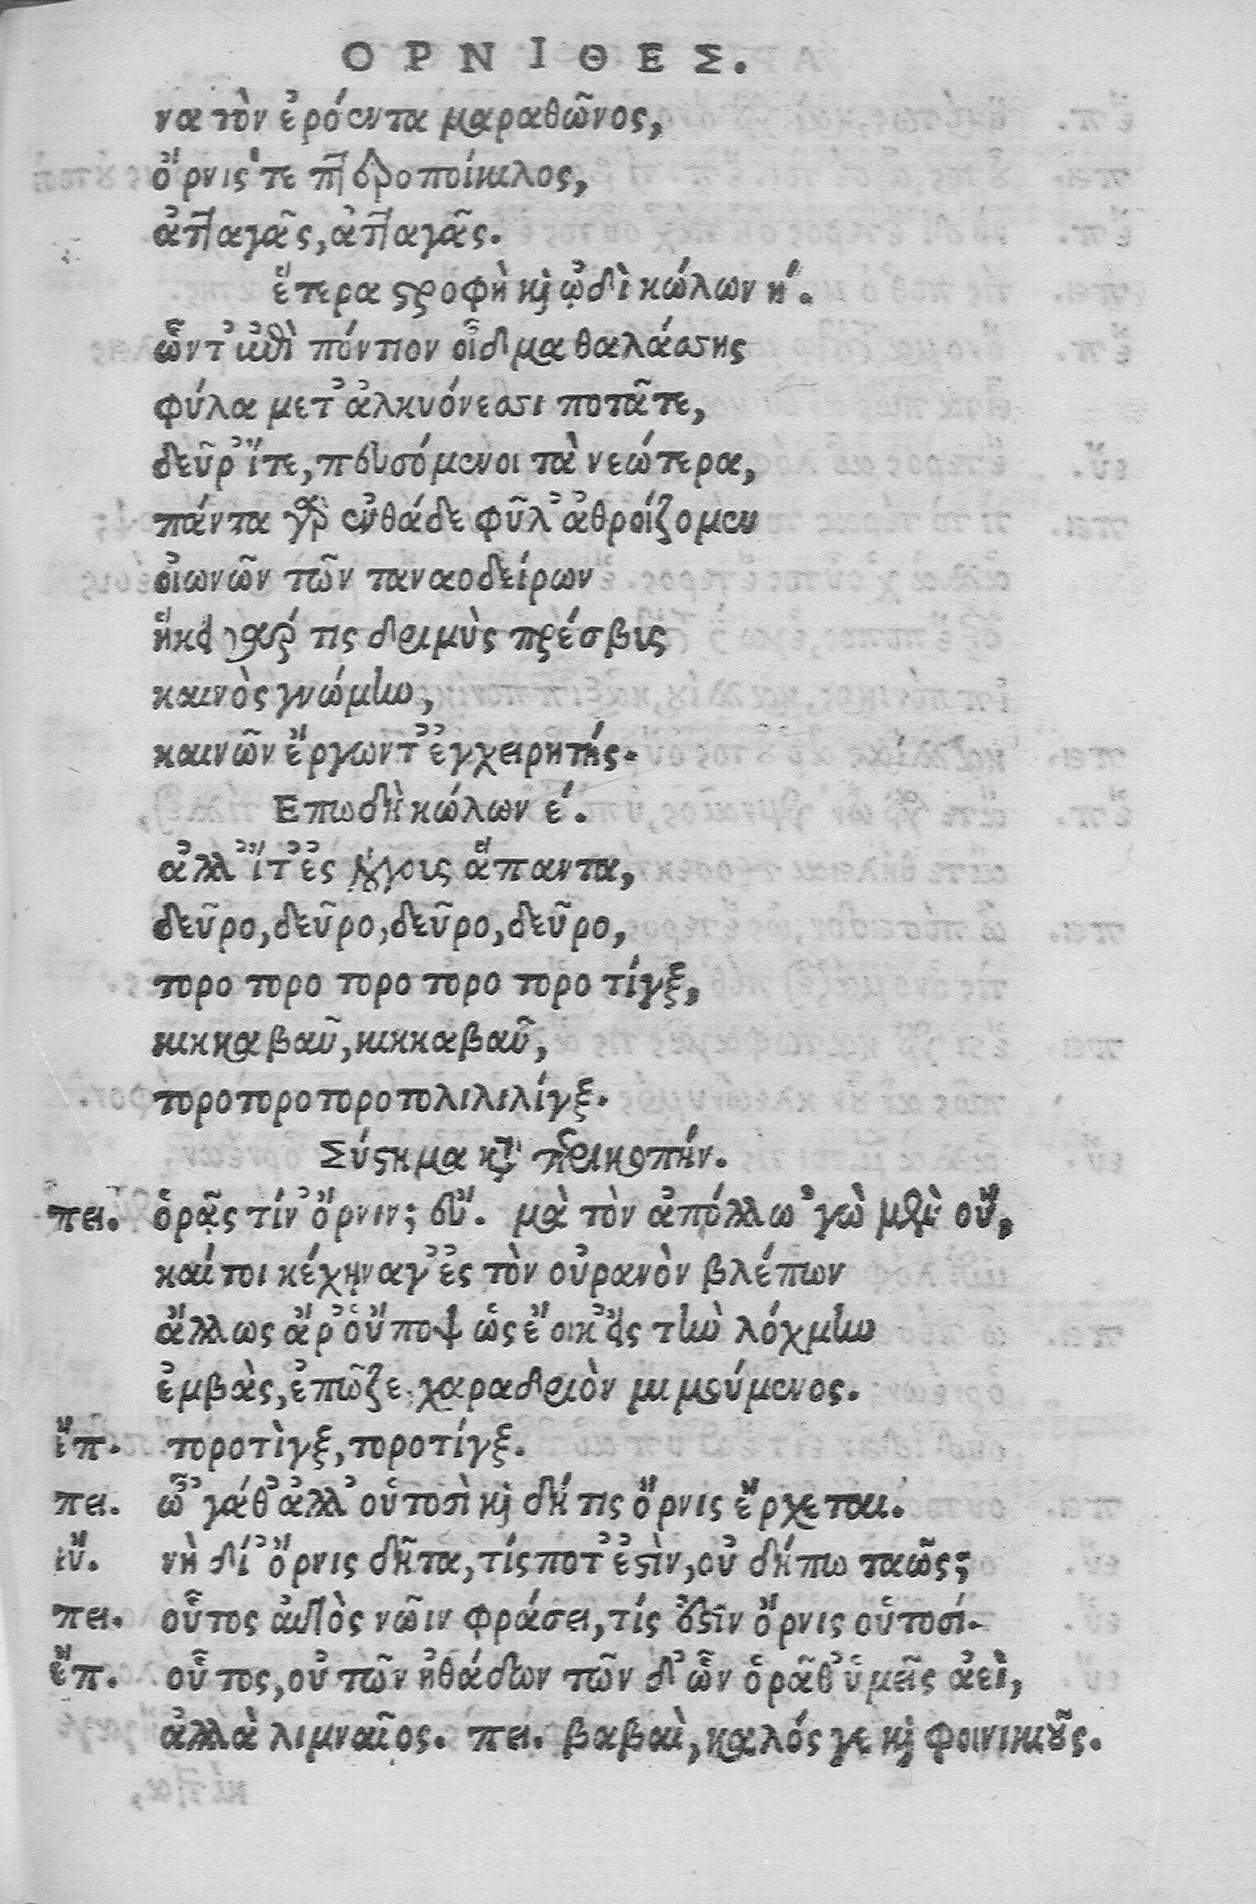 ΟΡΝΙΘΕΣ.
να τὸν ἐρόεντα μαραθῶνος,
ὄρνις τε πτεροποίκιλος,
ἀτταγᾶς, ἀτταγᾶς.
ἕτερα στροφὴ καὶ ᾠδὴ κώλων ή.
ὧν τ' ἐπὶ πόντιον οἶδμα θαλάσσης
φύλα μετ' ἀλκυόνεσσι ποτᾶτε,
δεῦρ' ἴτε, πευσόμενοι τὰ νεώτερα,
πάντα γὰρ ἐνθάδε φῦλ' ἀθροίζομεν
οἰωνῶν τῶν ταναοδείρων
ἥκει γάρ τις δριμὺς πρέσβις
καινὸς γνώμην,
καινῶν ἔργων τ' ἐγχειρητής.
Επωδὴ κώλων έ.
ἀλλ' ἴτ' ἐς λόγοις ἅπαντα,
δεῦρο, δεῦρο, δεῦρο, δεῦρο,
τορο τορο τορο τορο τορο τίγξ,
κικκαβαῦ, κικκαβαῦ,
τοροτοροτοροτολιλιλίγξ.
Σύστημα κατὰ περικοπήν.
πει. ὁρᾷς τίν' ὄρνιν; εὔ. μὰ τὸν ἀπόλλω 'γὼ μὲν οὔ,
καίτοι κέχηνα γ' ἐς τὸν οὐρανὸν βλέπων
ἄλλως ἄρ' οὔποψ ὡς ἔοικ' ἐς τὴν λόχμην
ἐμβὰς, ἐπῶζε χαραδριὸν μιμούμενος.
ἔπ. τοροτὶγξ, τοροτίγξ.
πει. ὦ 'γάθ' ἀλλ' οὑτοσὶ καὶ δή τις ὄρνις ἔρχεται.
εὔ. νὴ δί' ὄρνις δῆτα, τίς ποτ' ἐστὶν, οὐ δήπω ταῶς;
πει. οὗτος αὐτὸς νῶιν φράσει, τίς ἐστὶν ὄρνις οὑτοσί.
ἔπ. οὗτος, οὐ τῶν ἠθάδων τῶν δ' ὧν ὁρᾶθ' ὑμεῖς ἀεὶ,
ἀλλὰ λιμναῖος. πει. βαβαὶ, καλός γε καὶ φοινικιοῦς.